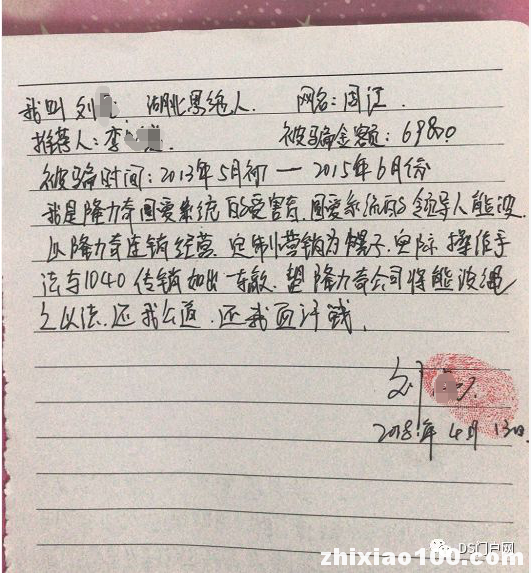 我叫刘 湖北恩施人. 网名:周江.
推荐人:李 被骗金额:69800
被骗时间:2013年5月初一2015年6月份
我是隆力奇国爱系统的受害者,国爱系统的领导人熊波
以隆力奇连锁经营.定制营销为幌子,实际操作手
法与1040传销如出一辙.望隆力奇公司将熊波绳
之以法.还我公道.还我血汗钱.
刘
2018年4月13日
DS门户网
zhixiao100.com